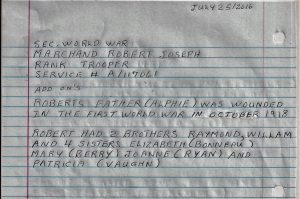 JULY 25/2016
SEC. WORLD WAR
MARCHAND ROBERT JOSEPH
RANK TROOPER
SERVICE # A/117061
ADD ON'S
ROBERTS FATHER (ALPHIE) WAS WOUNDED
IN THE FIRST WORLD WAR IN OCTOBER 1918
ROBERT HAD 2 BROTHERS RAYMOND, WILLAM
AND 4 SISTERS ELIZABETH (BONNEAU)
MARY (BERRY) JOANNE (RYAN) AND
PATRICIA (VAUGHN)